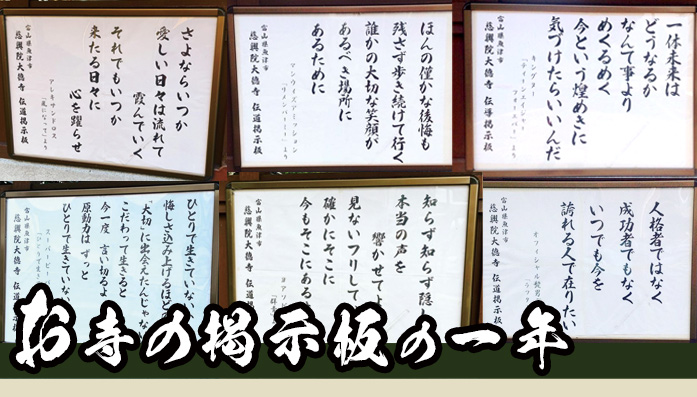 一体未来は
どうなるか
なんて事より
めくるめく
今という煌めきに
気づけたらいいんだ
キングヌー
富山県魚津市
慈興院大徳寺 伝導掲示板
ほんの僅かな後悔も
残さず歩き続けて行く
誰かの大切な笑顔が
あるべき場所に
あるために
マンウィズアミッション
富山県魚津市
慈興院大徳寺 伝道掲示板
さよならいつか
愛しい日々は流れて
霞んでいく
それでもいつか
来たる日々に
心を躍らせ
アレキサンドロス
「風になって」より
富山県魚津市
慈興院大徳寺 伝道掲示板
人格者ではなく
成功者でもなく
いつでも今を
誇れる人で在りたい
オフィシャル髭男
富山県魚津市
慈興院大徳寺 伝
知らず知らず隠し
本当の声を
響かせてよ
見ないフリして
確かにそこに
今もそこにある
ヨアソビ
富山県魚津市
慈興院大徳寺 伝
ひとりで生きていない
悔しさ込み上げるほどの
「大切」に出会えたんじゃな
こだわって生きると
今一度 言い切るよ
原動力は ずっと
ひとりで生きていない
スーパービー
富山県魚津市
慈興院大徳寺 伝
お寺の掲示板の一年